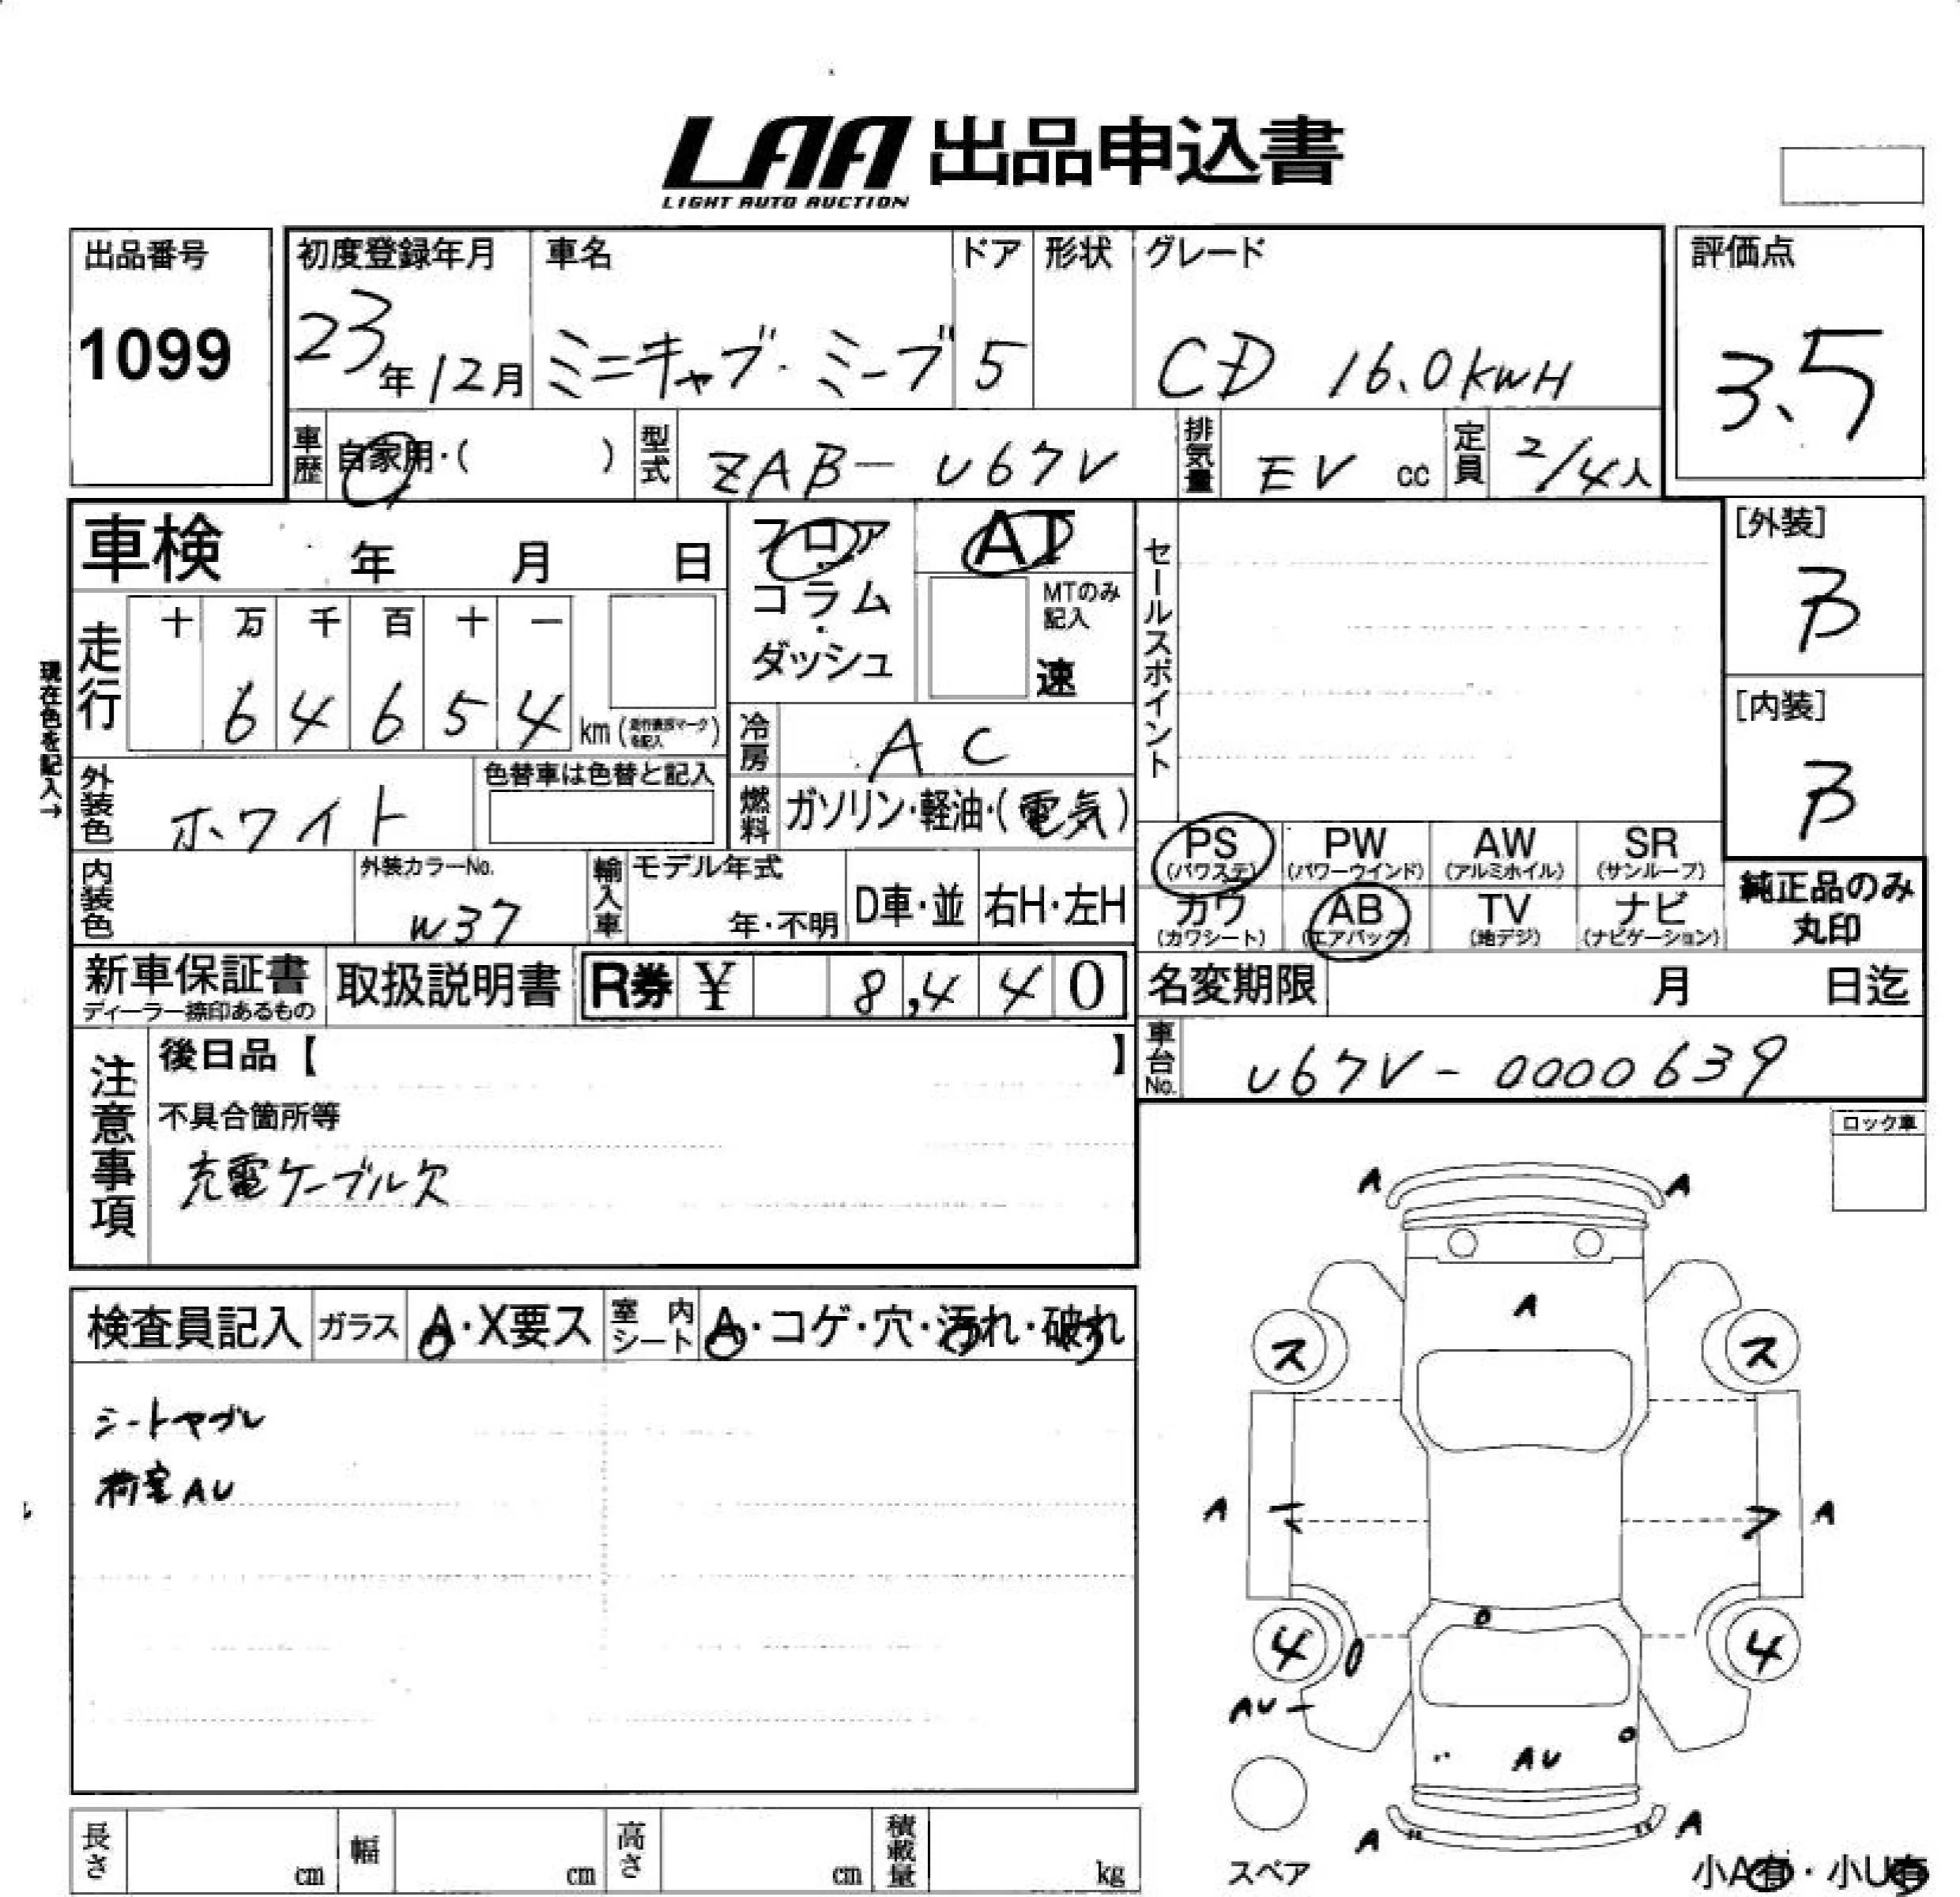 LAA 出品申込書
LIGHT AUTO AUCTION
出品番号
1099
初度登録年月
23年12月
車名
ミニキャブ・ミーブ
ドア
5
形状
グレード
CD 16.0kwH
評価点
3.5
車歴
自家用・( )
型式
ZAB-U67V
排気量
EV cc
定員
2/4人
車検 年 月 日
フロア
コラム
・
ダッシュ
AT
MTのみ
記入
速
セールスポイント
[外装]
B
[内装]
B
現在色を記入→
走行
十 万 千 百 十 一
6 4 6 5 4 km
冷房
AC
外装色
ホワイト
色替車は色替と記入
燃料
ガソリン・軽油・(電気)
PS
(パワステ)
PW
(パワーウインド)
AW
(アルミホイル)
SR
(サンルーフ)
カワ
(カワシート)
AB
(エアバッグ)
TV
(地デジ)
ナビ
(ナビゲーション)
純正品のみ
丸印
内装色
外装カラーNo.
W37
輸入車
モデル年式
年・不明
D車・並
右H・左H
新車保証書
ディーラー捺印あるもの
取扱説明書
R券 ¥ 8,440
名変期限 月 日迄
車台No.
U67V-0000639
注意事項
後日品【 】
不具合箇所等
充電ケーブル欠
ロック車
検査員記入
ガラス
A・X要ス
室内
シート
A・コゲ・穴・汚れ・破れ
シートヤブレ
荷室AU
A A
A
ス ス
A A
4 4
AU
AU
A A
スペア
小A有・小U有
長さ cm
幅 cm
高さ cm
積載量 kg